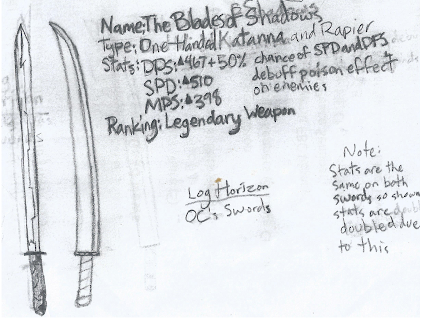 Name: The Blades of Shadows
Type: One Handed Katanna and Rapier
Stats: DPS: ▲467 + 50% chance of SPD and DFS
SPD: ▲510 debuff poison effect
MPS: ▲398 on enemies
Ranking: Legendary Weapon
Log Horizon
OC's Swords
Note:
Stats are the
same on both
swords so shown
stats are
doubled due
to this